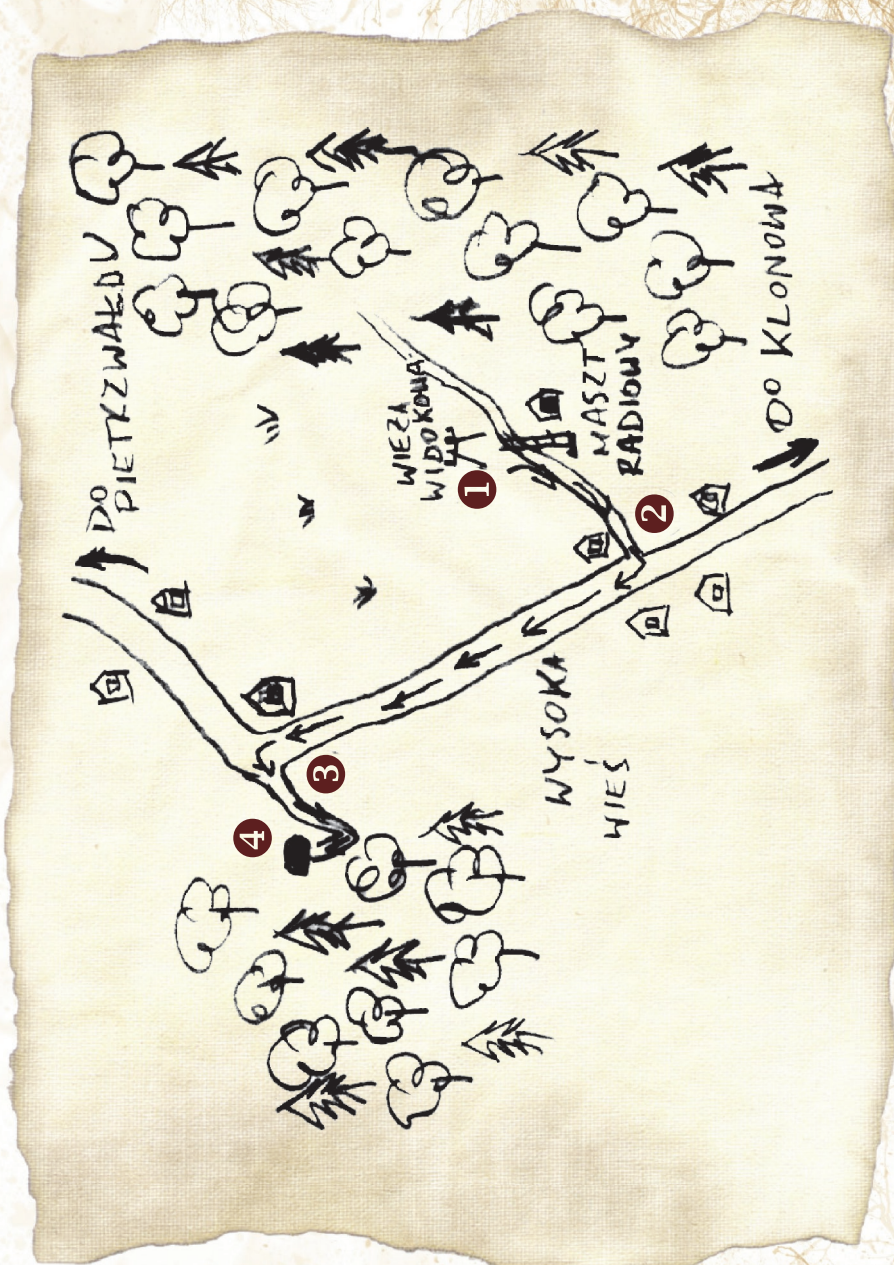 DO
PIETRZWAŁDU
WIEŻA
WIDOKOWA
1
MASZT
RADIOWY
2
DO KLONOWA
3
4
WYSOKA
WIEŚ